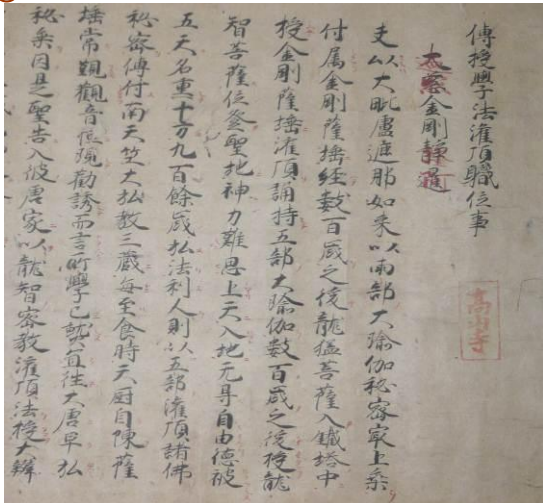 傳授學法灌頂職位事
高山寺
大慈金剛靜遍
夫以大毗盧遮那如来以兩部大瑜伽秘密冣上乘
付属金剛薩埵經數百歳之後龍猛菩薩入鐵塔中
授金剛薩埵灌頂誦持五部大瑜伽數百歳之後授龍
智菩薩位登聖地神力難思上天入地无㝵自由德被
五天名重十方九百餘歳弘法利人則以五部灌頂諸佛
秘密傳付南天竺大弘教三藏每至食時天厨自陳薩
埵常現觀音恒現勸誘而言所學已就宜往大唐早弘
秘乘因是聖告入彼唐家以龍智密教灌頂法授大辨